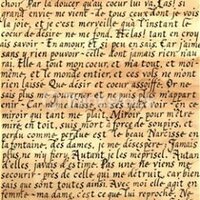 choir. Par la douceur qu'au coeur lui va. Las! si
grand envie me vient de tous ceux dont je vois
la joie; et c'est merveille qu'à l'instant le
coeur de désir ne me fond. Hélas! tant en croy
ais savoir En amour, et si peu en sais. Car j'aime
sans y rien pouvoir celle dont jamais rien n'au
rai. Elle a tout mon coeur, et m'a tout, et moi
même, et le monde entier, et ces vols ne m'ont
rien laissé Que désir et coeur assoiffé. Or ne
sais plus me gouverner
Car elle me
miroir qui tant me plaît. Miroir, pour m'être
miré en toi, suis mort à force de soupirs, et
perdu comme perdu s'est le beau Narcisse en
la fontaine. Des dames, je me désespère. Jamais
plus ne m'y fierai. Autant je les
d'elles jamais
courir près de celle qui me détruit, car bien
sais que sont toutes ainsi. Avec moi elle agit en
femme ma dame, c'est